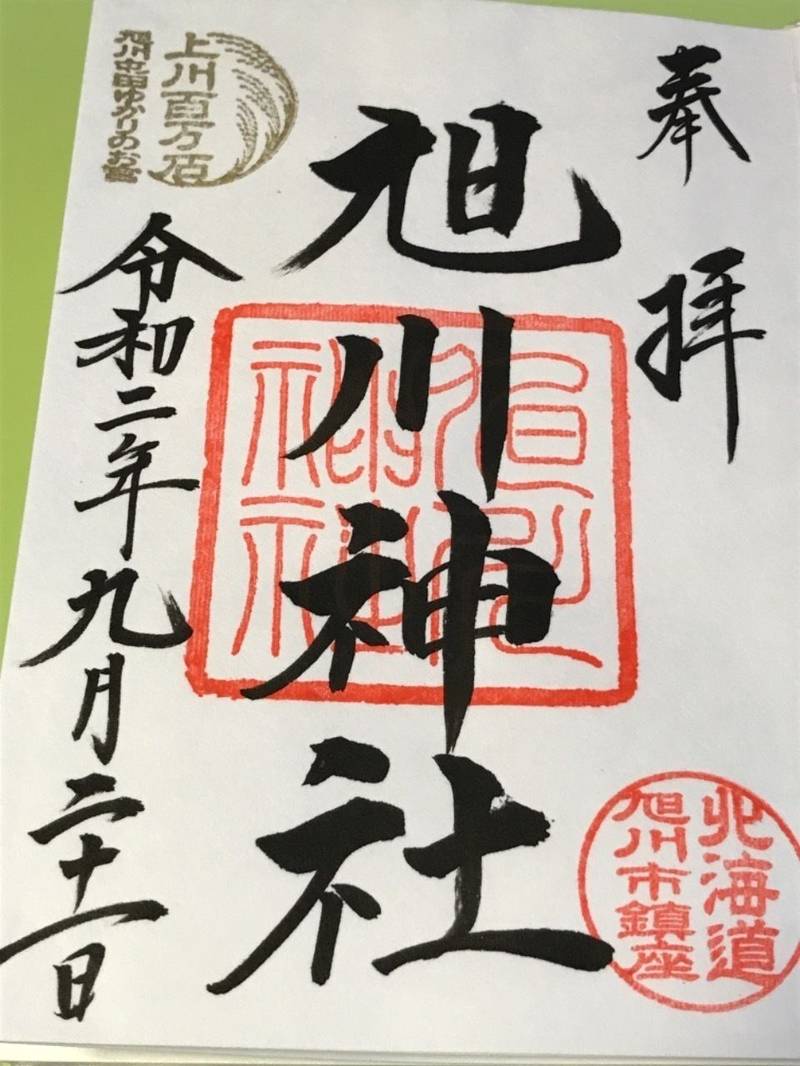 奉拝
旭川神社
旭川神社
北海道
旭川市鎮座
上川百万石
旭川屯田ゆかりのお宮
令和二年九月二十一日